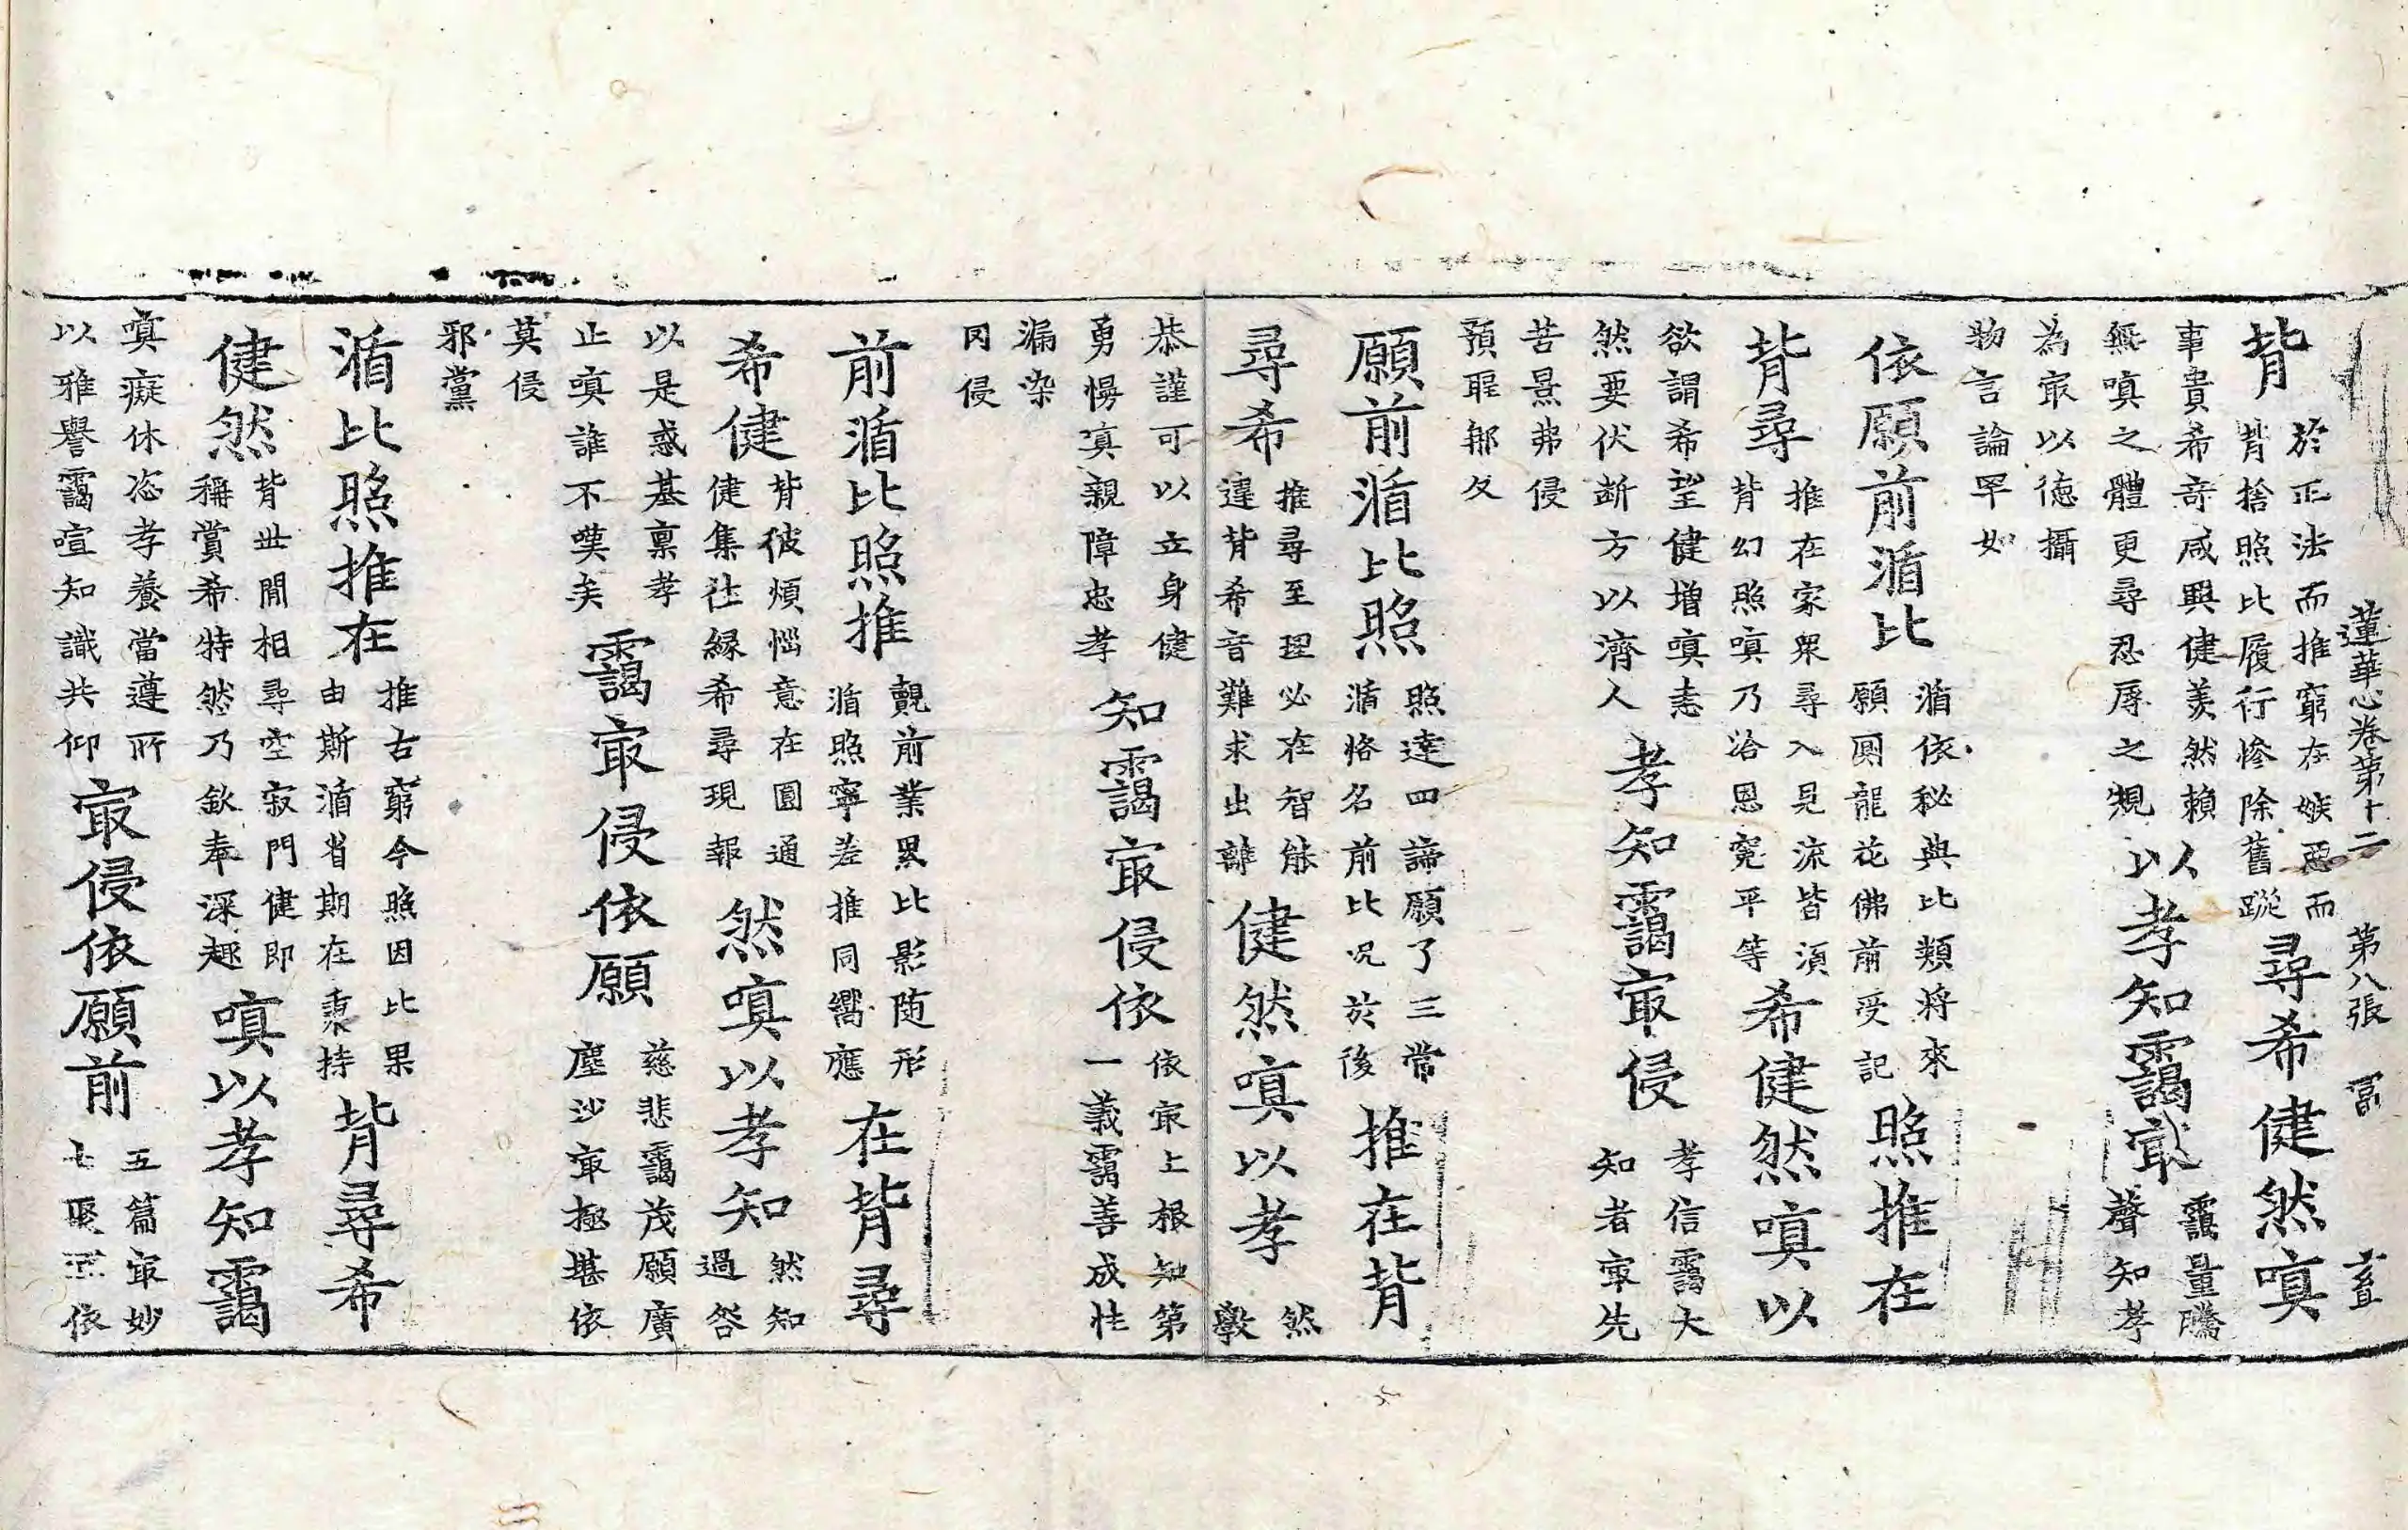 蓮華心卷第十二 第八張 冨
背 於正法而推窮在嫉惡而
背捨照比履行修除舊蹤 尋希健然嗔
事貴希奇咸興健羡然賴
無嗔之體更尋忍辱之規 以孝知靄㝡 靄量騰
聲知孝
為㝡以德攝
物言論罕如
依願前循比 循依秘典比類將來
願圓龍花佛前受記 照推在
背尋 推在家眾尋入見流皆湏
背幻照嗔乃洽恩寃平等 希健然嗔以
欲謂希望健增嗔恚
然要伏断方以濟人 孝知靄㝡侵 孝信靄大
知者㝡先
苦㬌弗侵
預聖郍及
願前循比照 照達四諦願了三常
循恪名前比况於後 推在背
尋希 推尋至理必在智能
違背希音難求出離 健然嗔以孝 然
斆
恭謹可以立身健
勇慢嗔親障忠孝 知靄㝡侵依 依㝡上根知第
一義靄善成性
漏染
冈侵
前循比照推 覩前業累比影随形
循照寧差推同嚮應 在背尋
希健 背彼煩惱意在圓通
健集徃緣希尋現報 然嗔以孝知 然知
過咎
以是惑基禀孝
止嗔誰不嘆矣 靄㝡侵依願 慈悲靄茂願廣
塵沙㝡極堪依
莫侵
邪黨
循比照推在 推古窮今照因比果
由斯循省期在秉持 背尋希
健然 背世間相尋空寂門健即
稱賞希特然乃欽奉深趣 嗔以孝知靄
嗔癡休恣孝養當遵所
以雅譽靄喧知識共仰 㝡侵依願前 五篇㝡妙
七聚 依